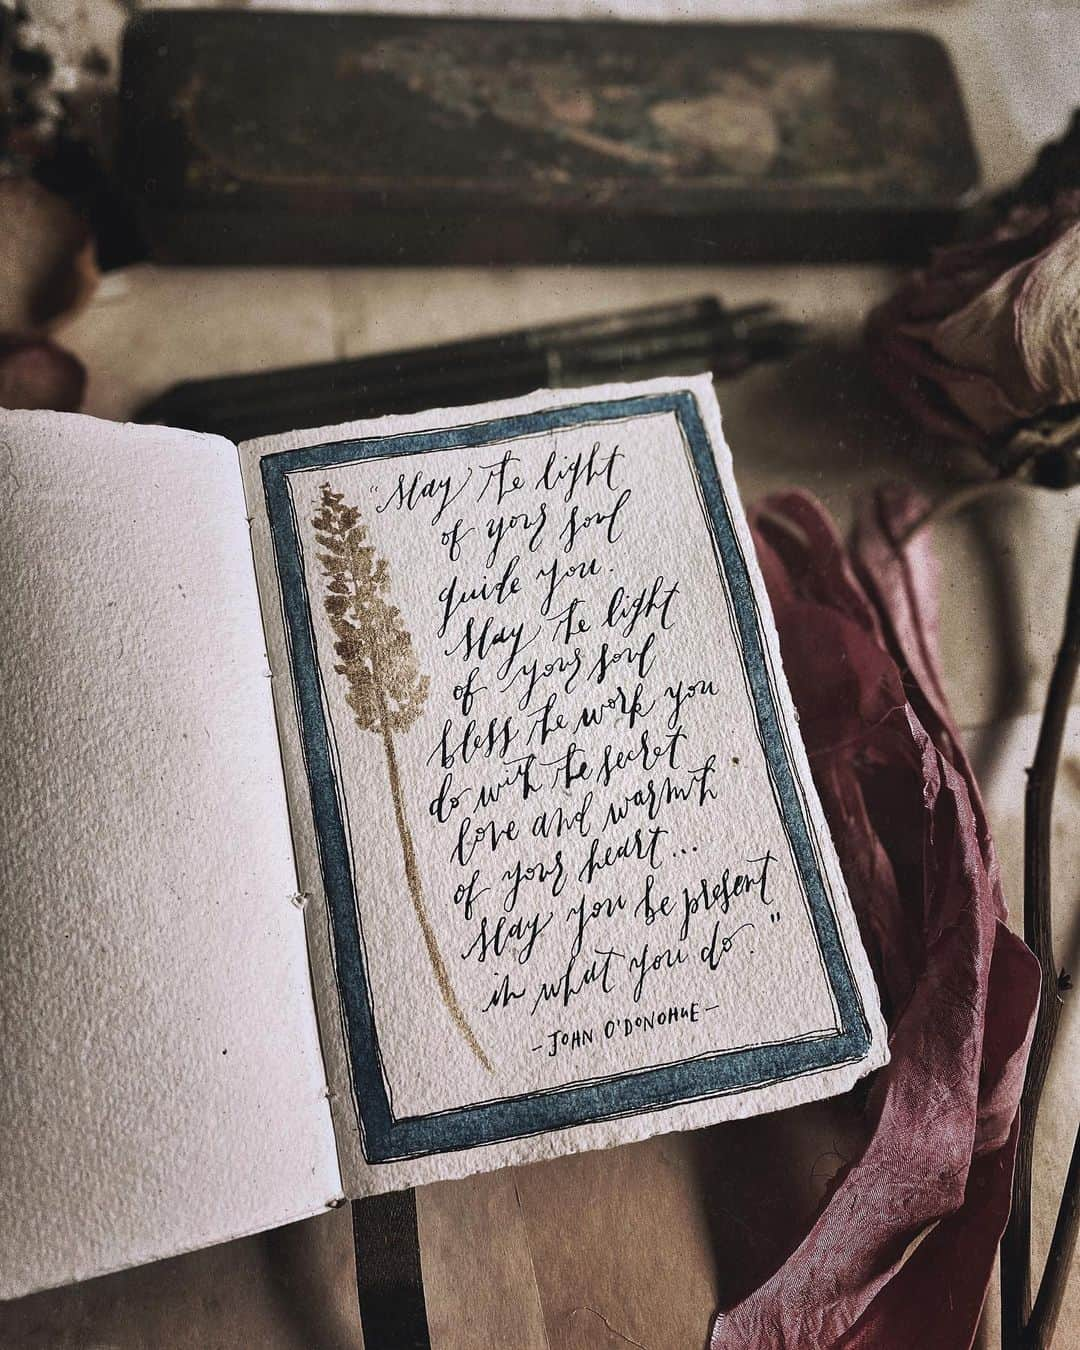 "May the light
of your soul
guide you.
May the light
of your soul
bless the work you
do with the secret
love and warmth
of your heart...
May you be present
in what you do."
- JOHN O'DONOHUE -